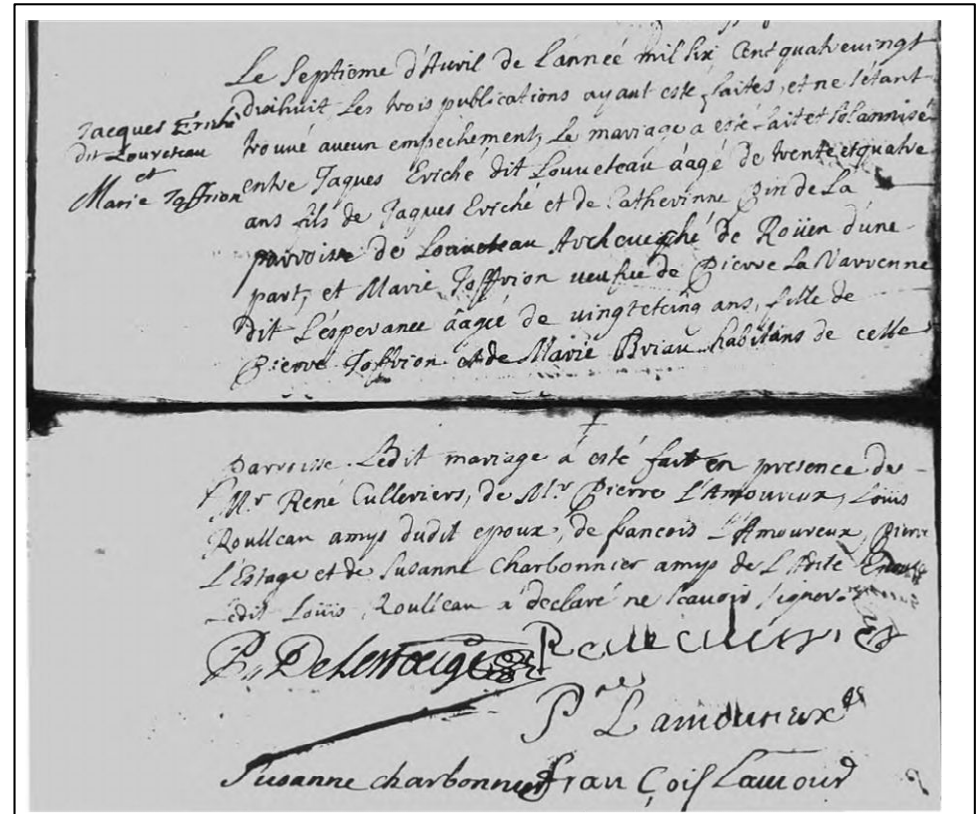 Jacques Eriché
dit Louveteau
et
Marie Joffrion
Le Septieme d'Auril de L'année mil six Cent quatrevingt
dixhuit Les trois publications ayant esté faites, et ne s'étant
trouué aucun empechement, Le mariage a esté fait et solannisé
entre Jaques Eriché dit Louueteau âagé de trente et quatre
ans fils de Jaques Eriché et de Catherinne Pin de La
parroisse de Louueteau Archeuesché de Roüen d'une
part, et Marie Joffrion ueufue de Pierre La Varrenne
dit L'esperance âagée de uingt et cinq ans, fille de
Pierre Joffrion et de Marie Briau habitans de cette
parroisse. Ledit mariage a esté fait en presence de
Mr. René Culleriers, de Mr. Pierre L'Amoureux, Loüis
Roulleau amys dudit epoux, de francois L'Amoureux, Pierre
L'Estage et de Susanne Charbonnier amys de L'adite Epouse
Ledit Loüis Roulleau a declaré ne scauoir signer
P. De Lestage
Rene cullerier
P. Lamoureux
Susanne charbonnier
fran Çois Lamour